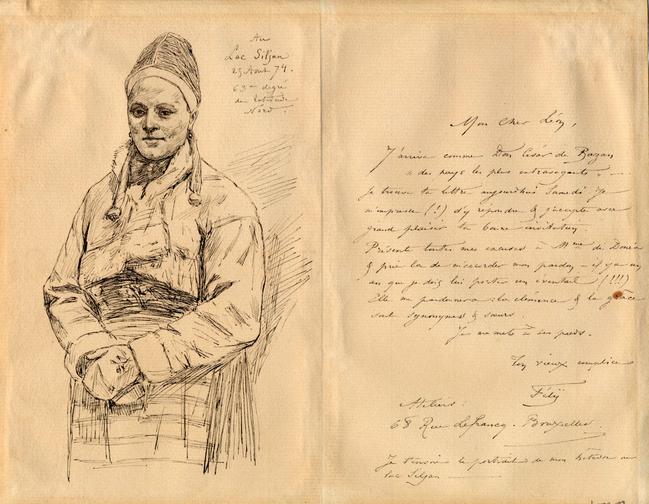 Au
Lac Siljan
25 Aout 74.
63me degré
de latitude
Nord.
Mon cher Léon,
J'arrive comme Don César de Bazan
des pays les plus extravagants.
Je trouve ta lettre aujourd'hui Samedi. Je
m'empresse (!!) d'y répondre & j'accepte avec
grand plaisir ta bonne invitation.
Présente toutes mes excuses à Mme de
& prie la de m'accorder mon pardon - il y a un
an que je dois lui porter un éventail! (!!!)
Elle me pardonnera: la clémence & la grâce
sont synonymes & sœurs.
Je me mets à ses pieds.
Ton vieux complice
Ateliers:
68 Rue Lefrancq - Bruxelles.
Je t'envoie le portrait de mon au
lac Siljan